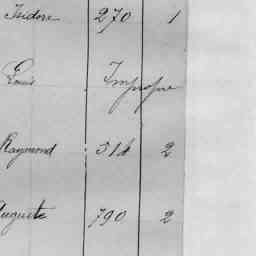 Isidore 270 1
Louis Impropre
Raymond 514 2
Auguste 790 2